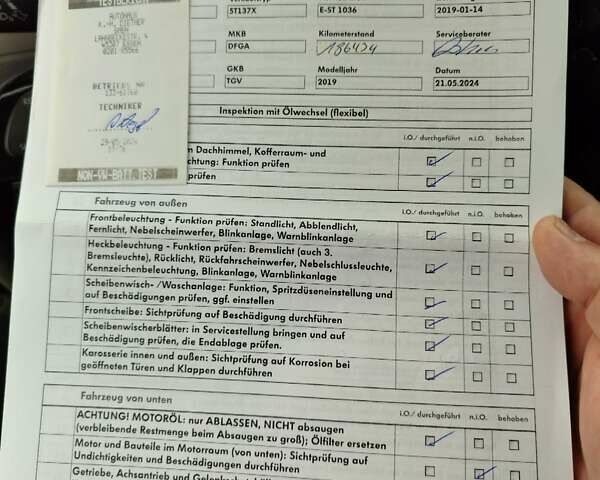 TESTBERICHT
AUTOHAUS
45307 ESSEN
0201-85566
BETRIEBS NR
TECHNIKER
NON-VW-BATT.TEST
5T137X
E-ST 1036
2019-01-14
MKB
Kilometerstand
Serviceberater
DFGA
186434
GKB
Modelljahr
Datum
TGV
2019
21.05.2024
Inspektion mit Ölwechsel (flexibel)
i.O./ durchgeführt
n.i.O.
behoben
n Dachhimmel, Kofferraum- und
chtung: Funktion prüfen
prüfen
Fahrzeug von außen
i.O./ durchgeführt
n.i.O.
behoben
Frontbeleuchtung - Funktion prüfen: Standlicht, Abblendlicht,
Fernlicht, Nebelscheinwerfer, Blinkanlage, Warnblinkanlage
Heckbeleuchtung - Funktion prüfen: Bremslicht (auch 3.
Bremsleuchte), Rücklicht, Rückfahrscheinwerfer, Nebelschlussleuchte,
Kennzeichenbeleuchtung, Blinkanlage, Warnblinkanlage
Scheibenwisch- /Waschanlage: Funktion, Spritzdüseneinstellung und
auf Beschädigungen prüfen, ggf. einstellen
Frontscheibe: Sichtprüfung auf Beschädigung durchführen
Scheibenwischerblätter: in Servicestellung bringen und auf
Beschädigung prüfen, die Endablage prüfen.
Karosserie innen und außen: Sichtprüfung auf Korrosion bei
geöffneten Türen und Klappen durchführen
Fahrzeug von unten
i.O./ durchgeführt
n.i.O.
behoben
ACHTUNG! MOTORÖL: nur ABLASSEN, NICHT absaugen
(verbleibende Restmenge beim Absaugen zu groß); Ölfilter ersetzen
Motor und Bauteile im Motorraum (von unten): Sichtprüfung auf
Undichtigkeiten und Beschädigungen durchführen
Getriebe, Achsantrieb und